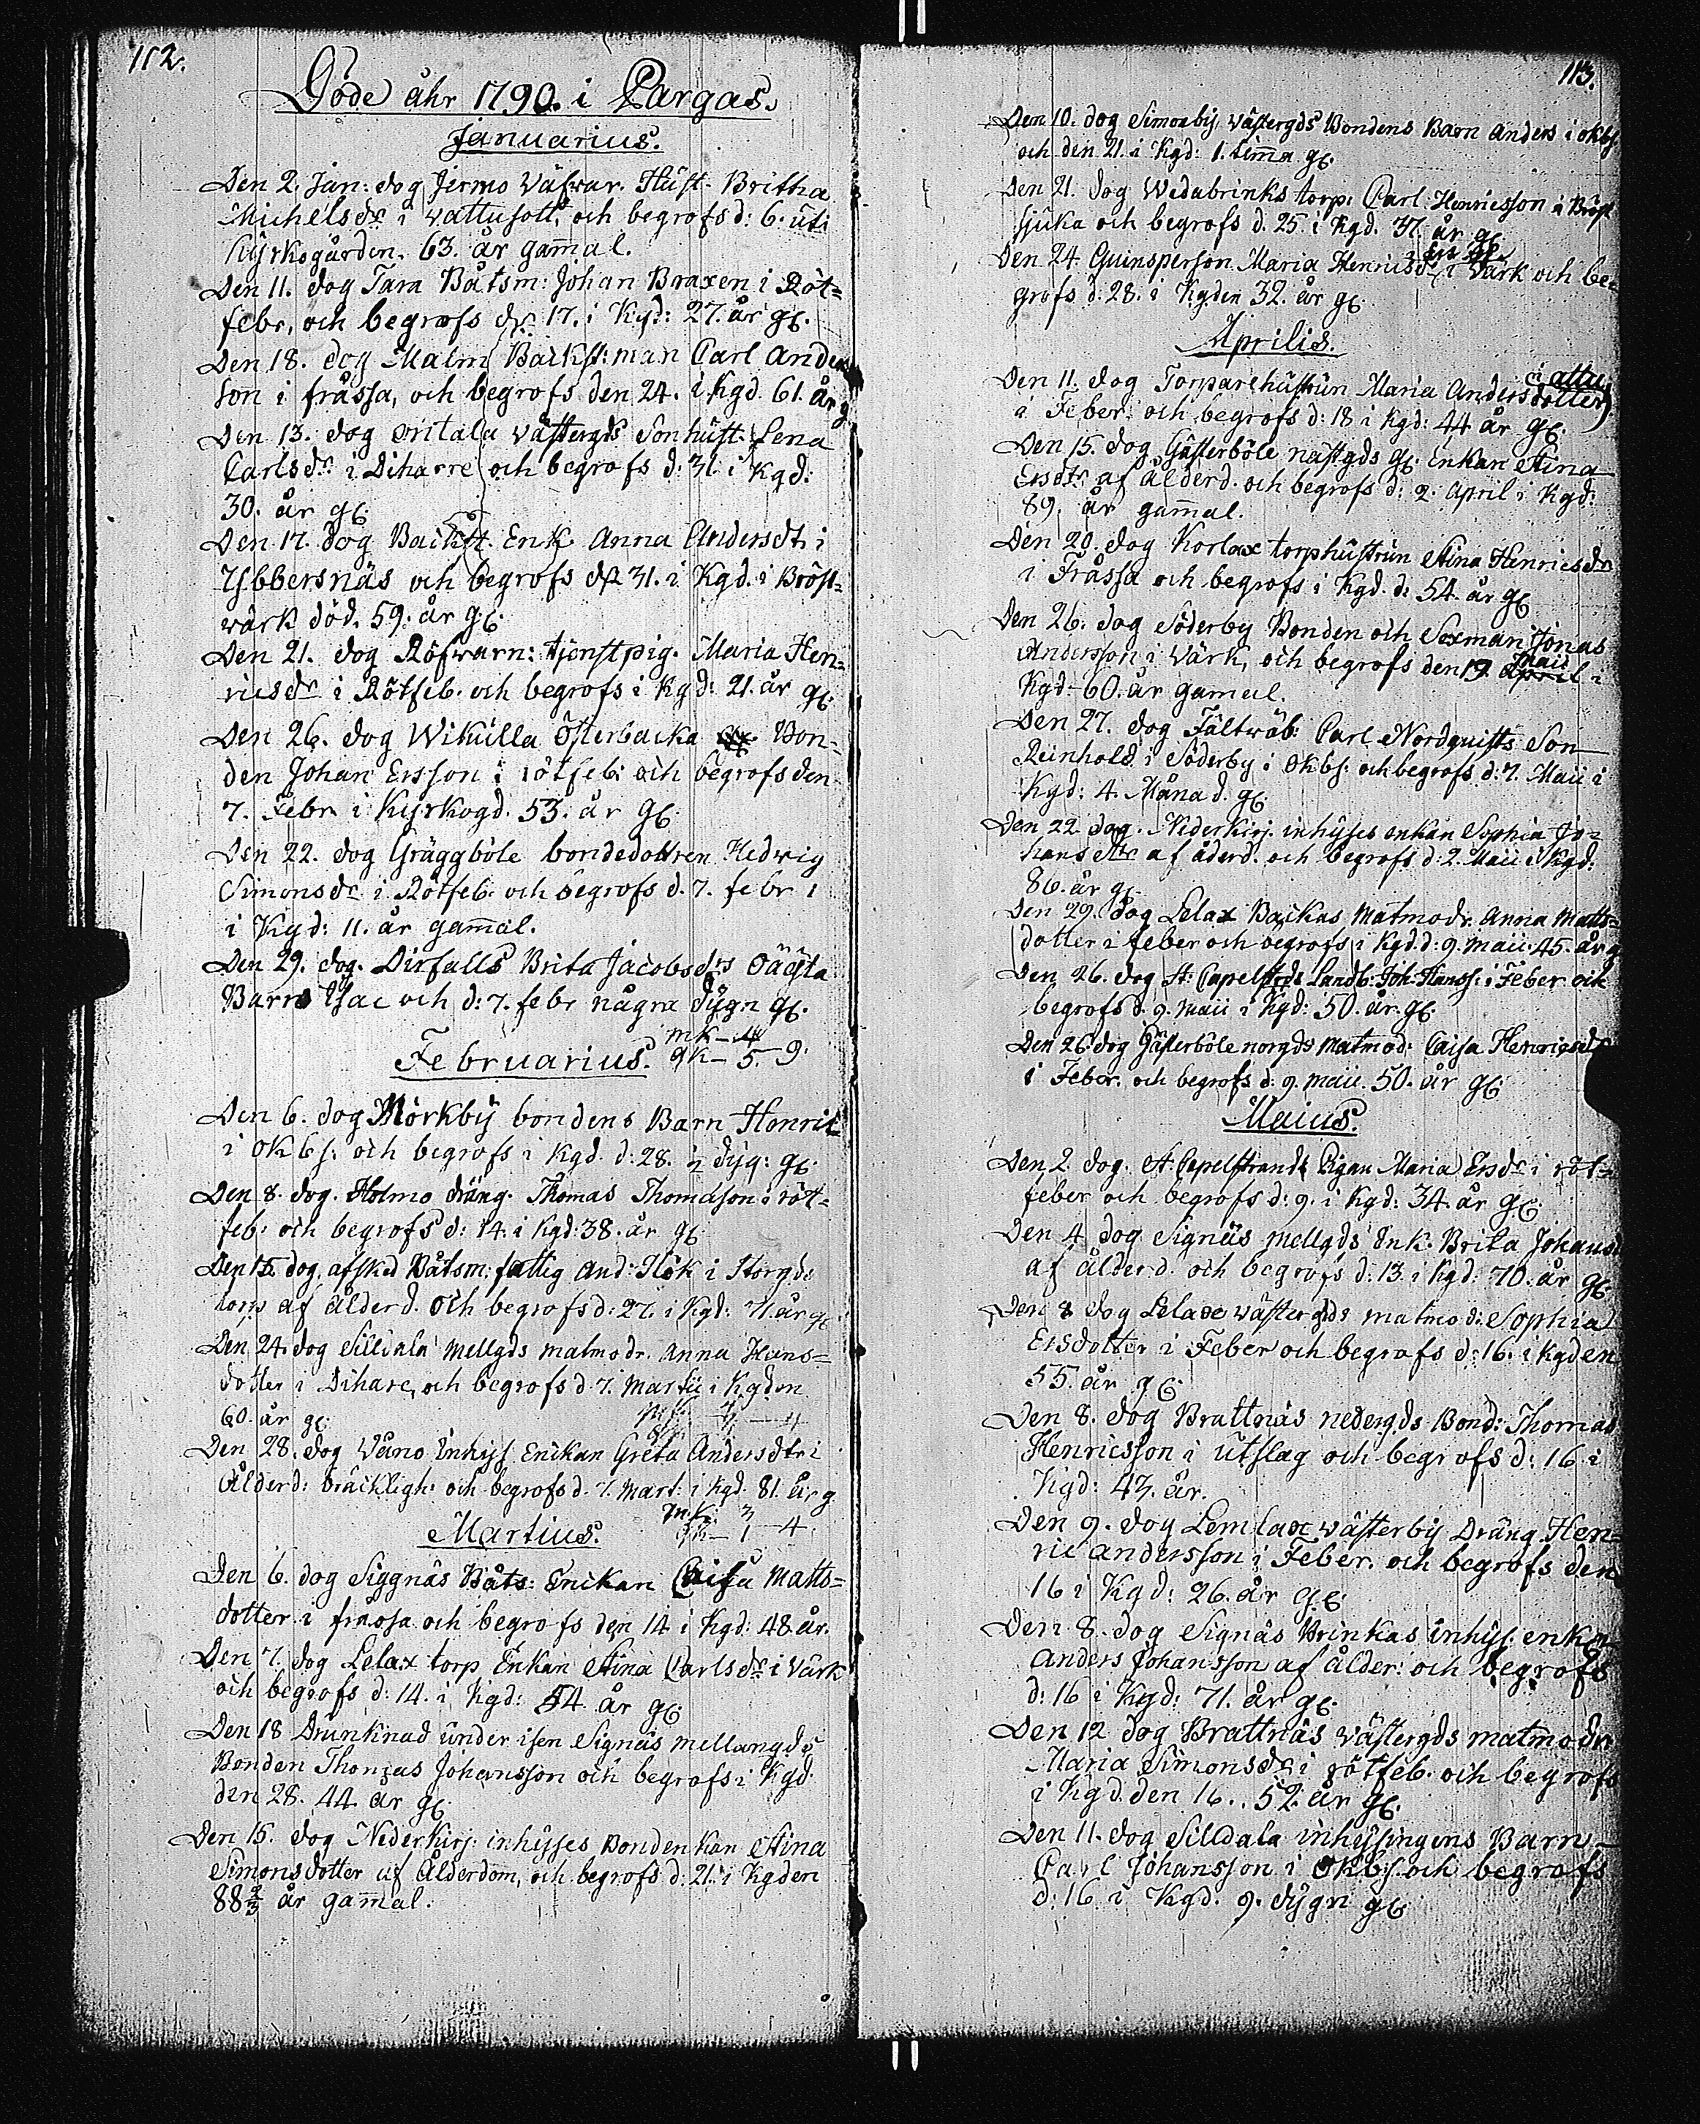 112.
Döde åhr 1790. i Pargas.
Januarius.
Den 2. Jan: dog Jermo Väfvar. Hust. Britha
Michelsdr i vattusott, och begrofs d: 6. uti
Kyrkogården. 63. år gam̄al.
Den 11. dog Tara Båtsm: Johan Braxen i Röt=
febr, och begrofs d: 17. i Kgd: 27. år gl.
Den 18. dog Malm Backst:man Carl Anders
son i fråssa, och begrofs den 24. i Kgd. 61. år g
Den 13. dog västergds Sonhust: Lena
Carlsdr i Diharre och begrofs d: 31. i Kgd:
30. år gl.
Den 17. dog Backst. Enk. Anna Andersdtr i
Ybbersnäs och begrofs d. 31. i Kgd. i Bröst=
värk död. 59. år gl.
Den 21. dog Röfvarn: tjenstpig. Maria Hen=
ricsdr i Rötfeb. och begrofs i Kgd: 21. år gl.
Den 26. dog Wikulla Österbacka Bon=
den Johan Ersson i rötfeb: och begrofs den
7. Febr. i Kyrkogd. 53. år gl.
Den 22. dog Gräggböle bondedottren Hedvig
Simonsdr i Rötfeb. och begrofs d. 7. febr i
i Kgd: 11. år gam̄al.
Den 29. dog. Dirfalls Brita Jacobsdrs Oächta
Barn Isac och d: 7. febr några dygn gl.
Februarius. mk - 4
qk - 5. 9.
Den 6. dog Mörkby bondens Barn Henric
i okbs: och begrofs i Kgd. d: 28. dyg: gl.
Den 8. dog. Holmo dräng. Thomas Thomasson i röt=
feb: och begrofs d: 14. i Kgd: 38. år gl.
Den 15. dog, afsked Båtsm: fattig And: Hök i Storgds
torp af ålderd. och begrofs d: 27. i Kgd: 71. år gl.
Den 24. dog Silldala mellgds matmodr. Anna Hans=
dotter i Dihare, och begrofs d 7. Martii i Kgden
60. år gl.
Den 28. dog Våno Inhys Enckan Greta Andersdtr i
Ålderd: bräckligh: och begrofs d. 7. Mart: i Kgd. 81. år g
mk. 3
Martius. qk - 1 - 4.
Den 6. dog Siggnäs Båts: Enckan Caisa Matts=
dotter i frossa och begrofs den 14 i Kgd: 48 år.
Den 7. dog Lelax torp Enkan Stina Carlsdr i Värk
och begrofs d: 14. i Kgd: 54 år gl.
Den 18 Drunknad under isen Signäs mellangds
Bonden Thomas Johansson och begrofs i Kgd.
den 28. 44 år gl.
Den 15. dog Nederkirj. inhyses Stina
Simonsdotter af Ålderdom, och begrofs d. 21. i Kgden
88 2/3 år gam̄al.
113.
Den 10. dog Simonby västergds Bondens Barn Anders i okbs
och den 21. i Kgd: 1. tim̄a gl.
Den 21. dog Wedabrinks torp: Carl Henricsson i Bröst
sjuka och begrofs d. 25. i Kgd. 37. år gl.
Den 24 Quinsperson Maria Henricsdr i Värk och be=
grofs d: 28. i Kgden 32. år gl.
Aprilis.
Den 11. dog Torparehustrun Maria Andersdotter
i Feber: och begrofs d: 18 i Kgd: 44 år gl.
Den 15. dog Gästerböle gl. Enkan Stina
Ersdtr af ålderd. och begrofs d: 2. April i Kgd:
89. år gam̄al.
Den 20. dog Korlax torphustrun Stina Henricsdr
i Fråssa och begrofs i Kgd. d: 54 år gl
Den 26. dog Söderby Bonden och Sexman Jonas
Andersson i Värk, och begrofs den 19. Maii April i
Kgd- 60. år gamal.
Den 27. dog Fältväb: Carl Nordquists Son
Reinhold i Söderby i okbs: och begrofs d: 7. Maii i
Kgd: 4. Månad. gl
Den 22. dog. Nederkirj. inhyses enkan Sophia Jo=
hans dtr af åderd. och begrofs d: 2. Maii i Kgd:
86. år gl
Den 29. dog Lelax Backas Matmodr. Anna Matts=
dotter i feber och begrofs i Kgd. d: 9. maii. 45. år g
Den 26. dog St. Capelstrde Landb: Joh. Hanss: i Feber och
begrofs d. 9. maii i Kgd: 50. år. gl.
Den 26 dog Gästerböle norgds matmod: Caisa Henricsdr
i Feber. och begrofs d: 9. maii. 50. år gl.
Maius.
Den 2. dog. St. Capelstrands Pigan Maria Ersdr i röt=
feber och begrofs d: 9. i Kgd: 34. år gl.
Den 4 dog Signäs mellgds Enk. Brita Johans
af ålderd. och begrofs d: 13. i Kgd: 70. år gl.
Den 8 dog Lelax västergds matmod: Sophia
Ersdotter i Feber och begrofs d: 16. i Kgden
55. år gl.
Den 8. dog Brattnäs nedergds Bond: Thomas
Henricsson i utslag och begrofs d: 16 i
Kgd: 43. år.
Den 9. dog Lemlax västerby Dräng Hen=
ric Andersson i Feber. och begrofs den
16 i Kgd: 26. år gl.
Den 8. dog Signäs Brinkas inhys: enkan
Anders Johansson af ålder: och begrofs
d: 16 i Kgd: 71. år gl.
Den 12 dog Brattnäs västergds matmodr
Maria Simonsdr i rötfeb. och begrofs
i Kgd. den 16.. 52 år gl.
Den 11. dog Silldala inhysingens Barn
Carl Johansson i Okbs. och begrofs
d: 16 i Kgd. 9. dygn gl.